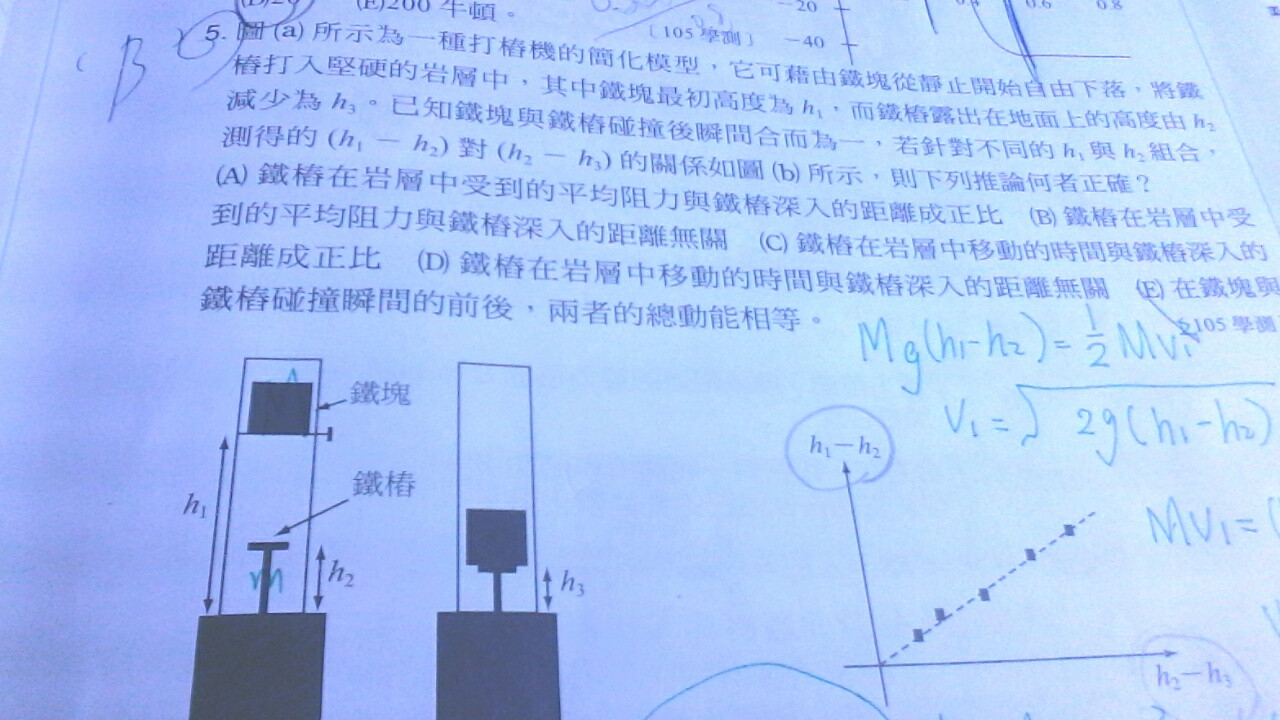 (E)200 牛頓。
〔105 學測〕
-20
-40
0.6
0.8
(B
5. 圖 (a) 所示為一種打樁機的簡化模型，它可藉由鐵塊從靜止開始自由下落，將鐵
樁打入堅硬的岩層中，其中鐵塊最初高度為 h₁，而鐵樁露出在地面上的高度由 h₂
減少為 h₃。已知鐵塊與鐵樁碰撞後瞬間合而為一，若針對不同的 h₁ 與 h₂ 組合，
測得的 (h₁ － h₂) 對 (h₂ － h₃) 的關係如圖 (b) 所示，則下列推論何者正確？
(A) 鐵樁在岩層中受到的平均阻力與鐵樁深入的距離成正比　(B) 鐵樁在岩層中受
到的平均阻力與鐵樁深入的距離無關　(C) 鐵樁在岩層中移動的時間與鐵樁深入的
距離成正比　(D) 鐵樁在岩層中移動的時間與鐵樁深入的距離無關　(E) 在鐵塊與
鐵樁碰撞瞬間的前後，兩者的總動能相等。
105 學測
Mg(h₁-h₂) = ½ Mv₁²
V₁ = √2g(h₁-h₂)
MV₁ = (
鐵塊
鐵樁
h₁
m
h₂
h₃
h₁－h₂
h₂－h₃